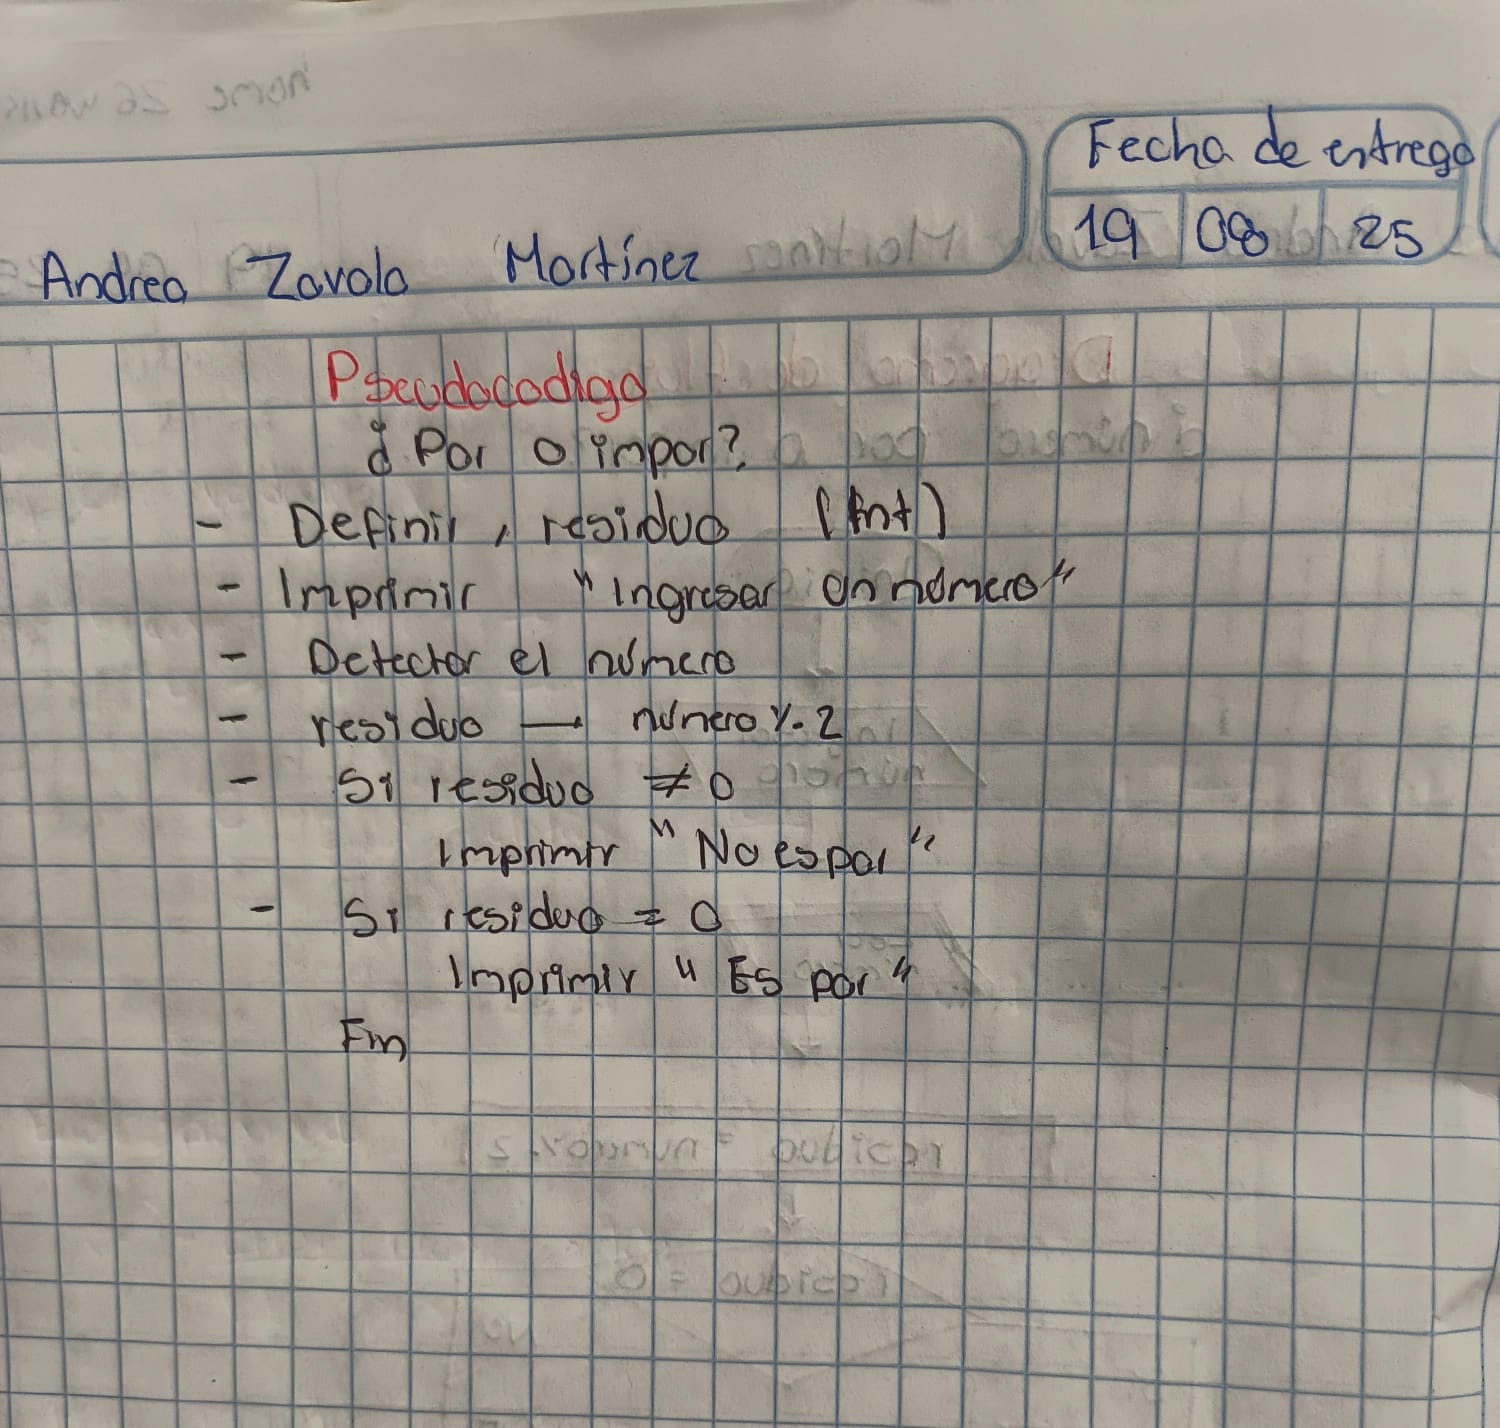 Fecha de entrega
19 08 25
Andrea Zavala Martínez
Pseudocodigo
¿Par o impar?
- Definir, residuo (Int)
- Imprimir "Ingresar un número"
- Detectar el número
- residuo → número % 2
- Si residuo ≠ 0
Imprimir "No es par"
- Si residuo = 0
Imprimir "Es par"
Fin